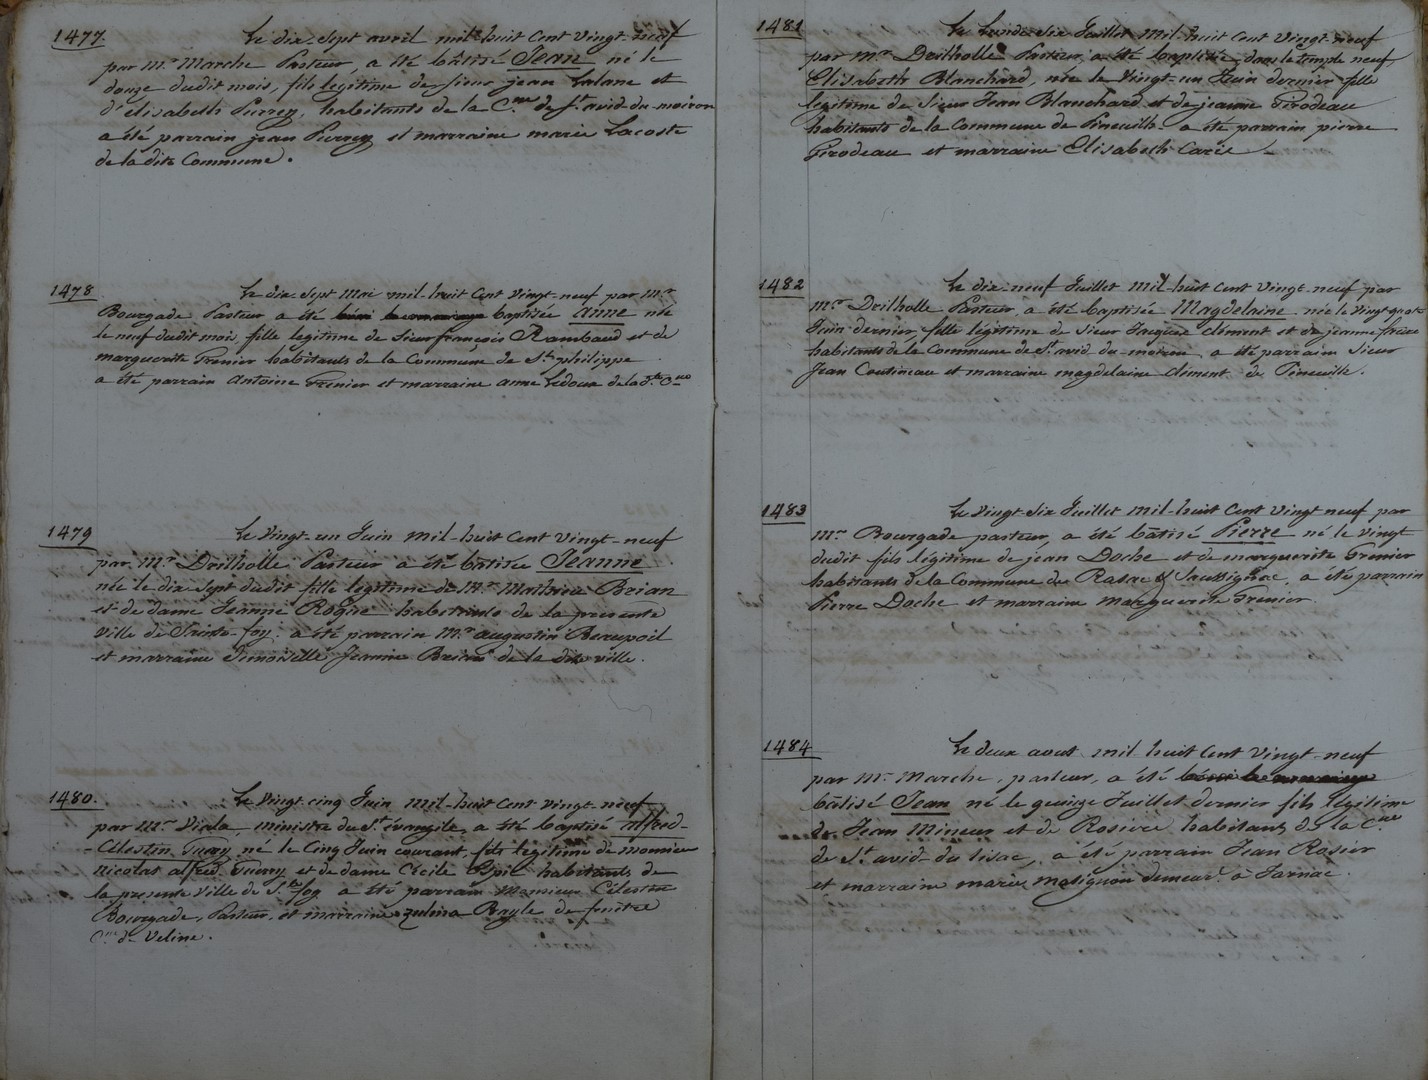 1477
Le dix-Sept avril mil-huit Cent Vingt-neuf
par mr Marche Pasteur, a été bâtisé Jean né le
douze dudit mois, fils legitime de Sieur jean Lalane et
d'Elisabeth habitants de la Cne de St avid-du-moiron
a été parrain jean et marraine marie Lacoste
de la dite Commune.
1478
Le dix Sept Mai mil-huit Cent Vingt-neuf par Mr
Bourgade Pasteur a été béni le mariage baptisée anne née
le neuf dudit mois, fille legitime de Sieur françois Rambaud et de
marguerite Grenier habitants de la Commune de St philippe
a été parrain Antoine Grenier et marraine anne Ledoux de la dte Cne
1479
Le Vingt-un Juin Mil-huit Cent Vingt-neuf
par Mr Drilholle Pasteur a été bâtisée Jeanne
née le dix Sept dudit fille legitime de Mr Mathieu Brian
et de dame Jeanne Rogère habitants de la présente
Ville de Sainte-foy. a été parrain Mr augustin Beaupoil
et marraine Dmoiselle Jeanne Brian de la dite ville.
1480.
Le Vingt-cinq Juin Mil-huit Cent Vingt-neuf
par Mr Viala ministre du St évangile, a été baptisé alfred-
-Célestin né le Cinq Juin courant, fils legitime de monsieur
Nicolas alfred et de dame Cécile Espic habitants de
la presente Ville de Ste foy a été parrain Monsieur Célestin
Bourgade, Pasteur, et marraine zulma Rayle de
Cne de Veline.
1481
Le Lundi Six Juillet Mil-huit Cent Vingt-neuf
par mr Drilholle Pasteur, a été baptisée, dans le temple neuf
Elisabeth Blanchard, née le Vingt-un Juin dernier fille
legitime de Sieur Jean Blanchard et de jeanne Girodeau
habitants de la Commune de Pineuilh a été parrain pierre
Girodeau et marraine Elisabeth
1482
Le dix-neuf Juillet Mil-huit Cent Vingt-neuf par
Mr Drilholle Pasteur, a été baptisée Magdelaine née le Vingt-quatre
Juin dernier, fille légitime de Sieur Jacques Clément et de jeanne
habitants de la Commune de St avid-du-moiron a été parrain Sieur
Jean Coutineau et marraine magdelaine Clément de Pineuilh.
1483
Le Vingt Six Juillet Mil-huit Cent Vingt neuf par
Mr Bourgade pasteur, a été bâtisé Pierre né le Vingt
dudit fils légitime de jean Doche et de marguerite Grenier
habitants de la Commune de Rasac & Saussignac, a été parrain
Pierre Doche et marraine Marguerite Grenier
1484
Le deux aout mil huit Cent Vingt-neuf
par Mr Marche, pasteur, a été béni le mariage
bâtisé Jean né le quinze Juillet dernier fils legitime
de Jean Mineur et de Rosière habitants de la Cne
de St avid du a été parrain Jean Rosier
et marraine marie matignon demeurt à